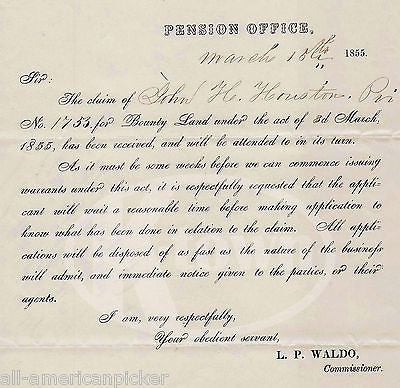 PENSION OFFICE,
March 18th 1855.
Sir:
The claim of John H. Houston, Pri
No. 1753 for Bounty Land under the act of 3d March,
1855, has been received, and will be attended to in its turn.
As it must be some weeks before we can commence issuing
warrants under this act, it is respectfully requested that the appli-
cant will wait a reasonable time before making application to
know what has been done in relation to the claim. All appli-
cations will be disposed of as fast as the nature of the business
will admit, and immediate notice given to the parties, or their
agents.
I am, very respectfully,
Your obedient servant,
L. P. WALDO,
Commissioner.
all-americanpicker